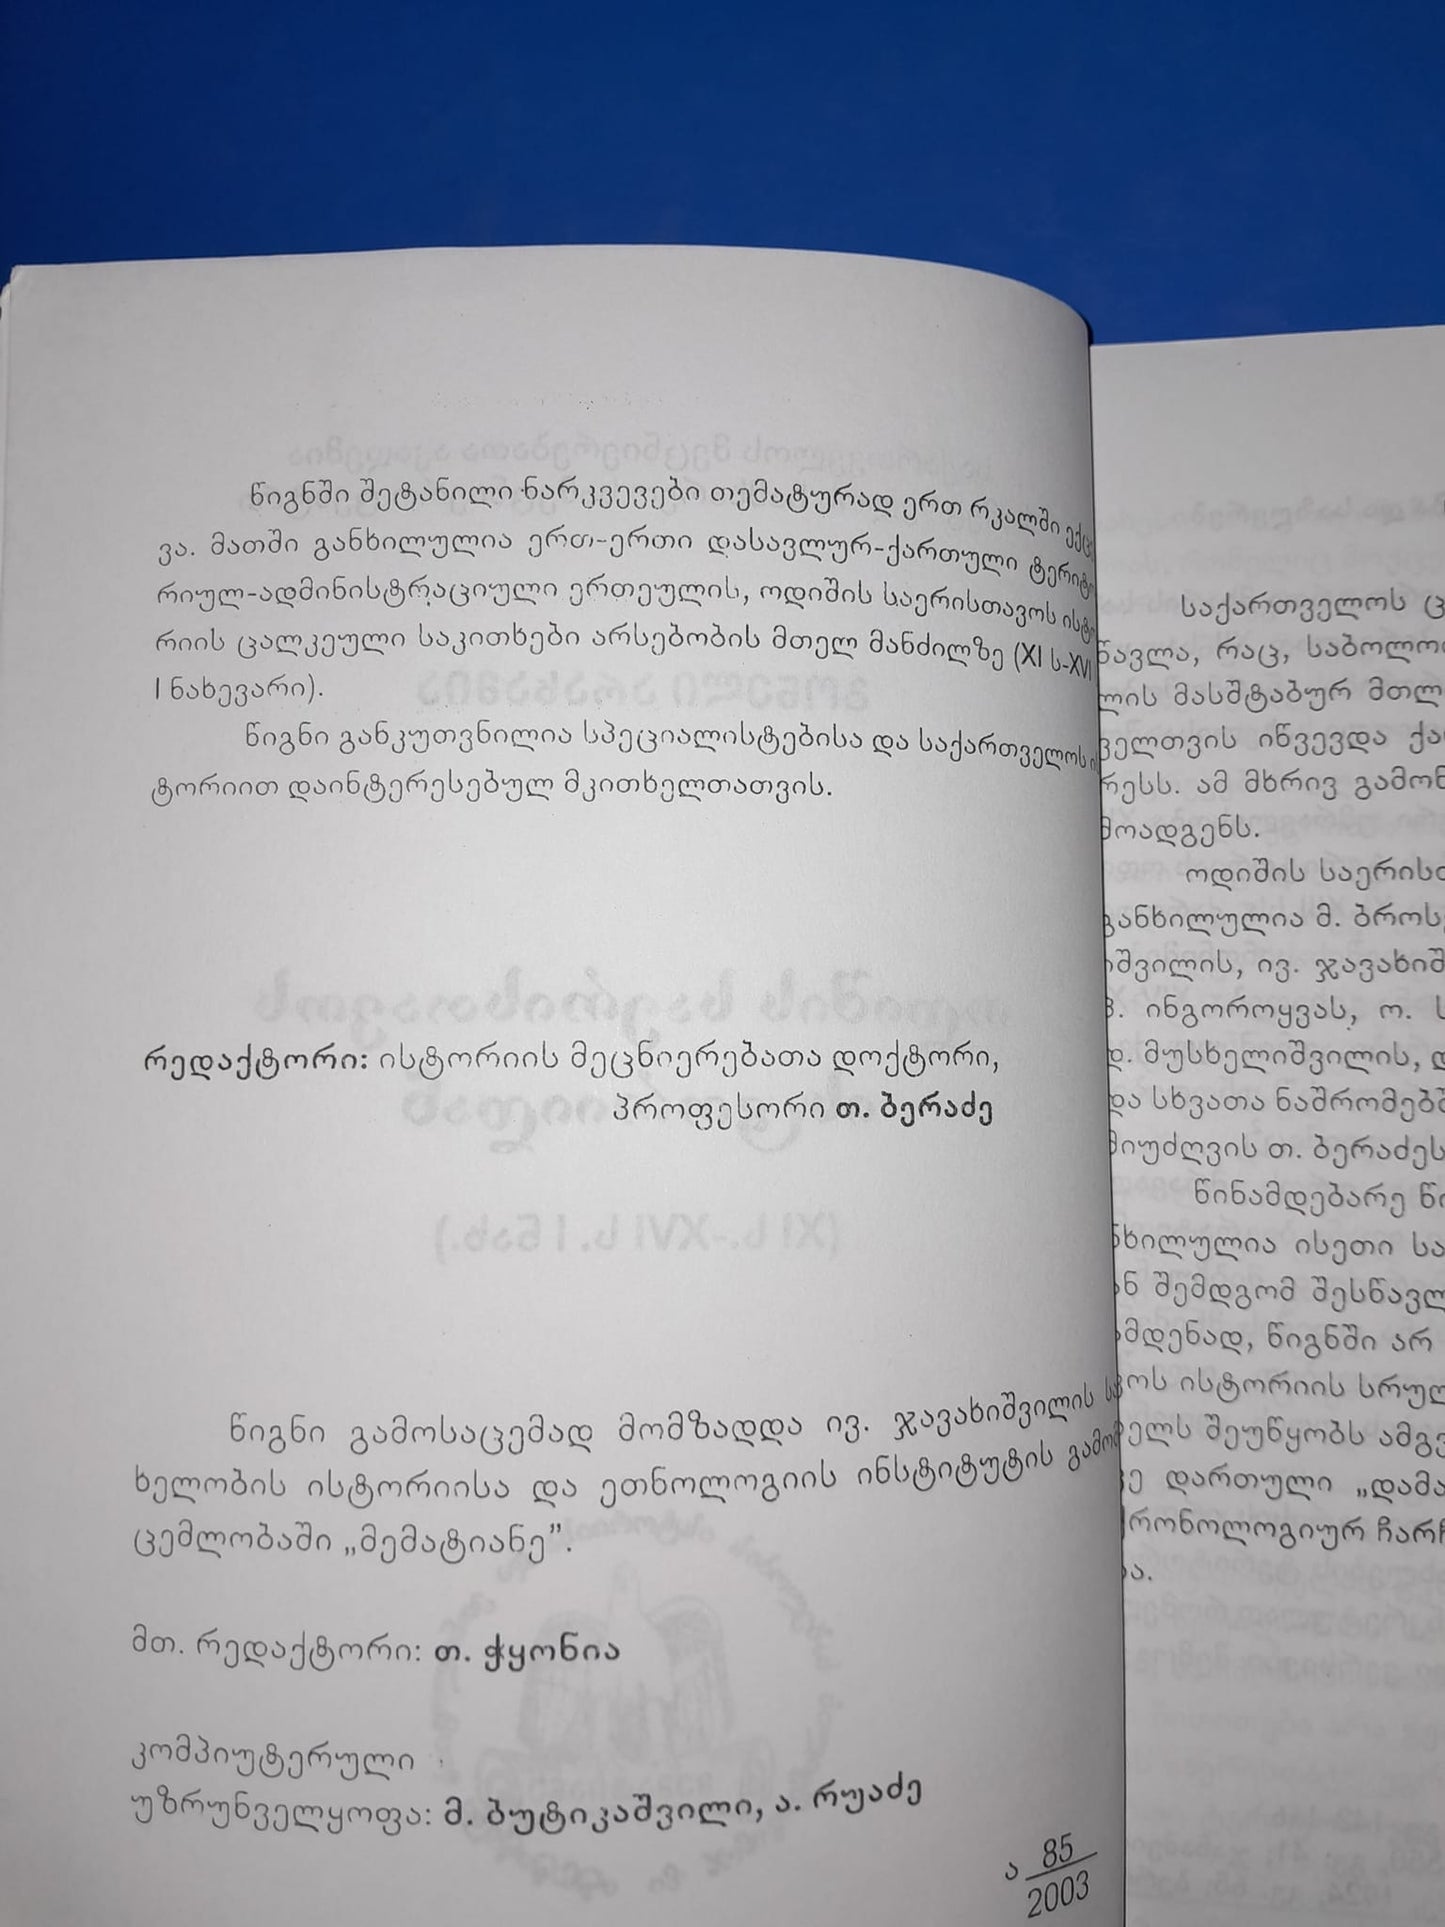 წიგნში შეტანილი ნარკვევები თემატურად ერთ რკალში ექც
ვა. მათში განხილულია ერთ-ერთი დასავლურ-ქართული ტერიტ
რიულ-ადმინისტრაციული ერთეულის, ოდიშის საერისთავოს ისტ
რიის ცალკეული საკითხები არსებობის მთელ მანძილზე (XI ს-XVI
I ნახევარი).
წიგნი განკუთვნილია სპეციალისტებისა და საქართველოს ი
ტორიით დაინტერესებულ მკითხელთათვის.
რედაქტორი: ისტორიის მეცნიერებათა დოქტორი,
პროფესორი თ. ბერაძე
წიგნი გამოსაცემად მომზადდა ივ. ჯავახიშვილის ს
ხელობის ისტორიისა და ეთნოლოგიის ინსტიტუტის გამომ
ცემლობაში „მემატიანე”.
მთ. რედაქტორი: თ. ჭყონია
კომპიუტერული
უზრუნველყოფა: მ. ბუტიკაშვილი, ა. რუაძე
ა 85
2003
საქართველოს ც
წავლა, რაც, საბოლოო
ლის მასშტაბურ მთლ
ველთვის იწვევდა ქა
რესს. ამ მხრივ გამონ
მოადგენს.
ოდიშის საერისთ
განხილულია მ. ბროს
იშვილის, ივ. ჯავახიშ
პ. ინგოროყვას, ო. ს
დ. მუსხელიშვილის, დ
და სხვათა ნაშრომებშ
მიუძღვის თ. ბერაძეს
წინამდებარე წი
ნხილულია ისეთი სა
ან შემდგომ შესწავლ
ამდენად, წიგნში არ
ვოს ისტორიის სრულ
ველს შეუწყობს ამგვ
ვე დართული „დამა
ქრონოლოგიურ ჩარჩ
ბა.